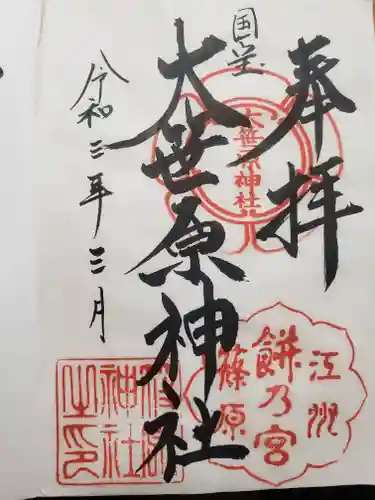 奉拝
国宝
大笹原神社
令和三年三月
大笹原神社
江州
餅乃宮
篠原
篠原
神社
之印